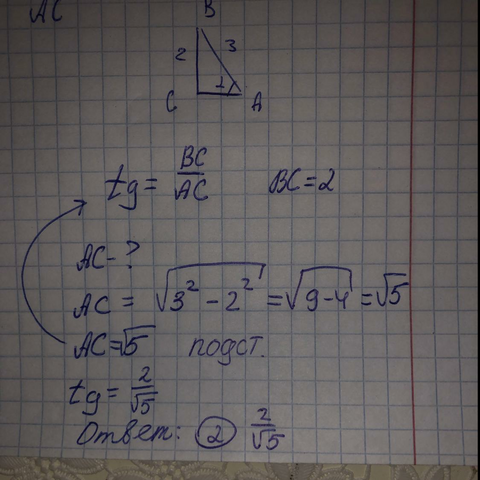 AC
B
2 3
1
C A
tg = BC/AC BC = 2
AC - ?
AC = √3² - 2² = √9-4 = √5
AC = √5 подст.
tg = 2/√5
Ответ: 2 2/√5